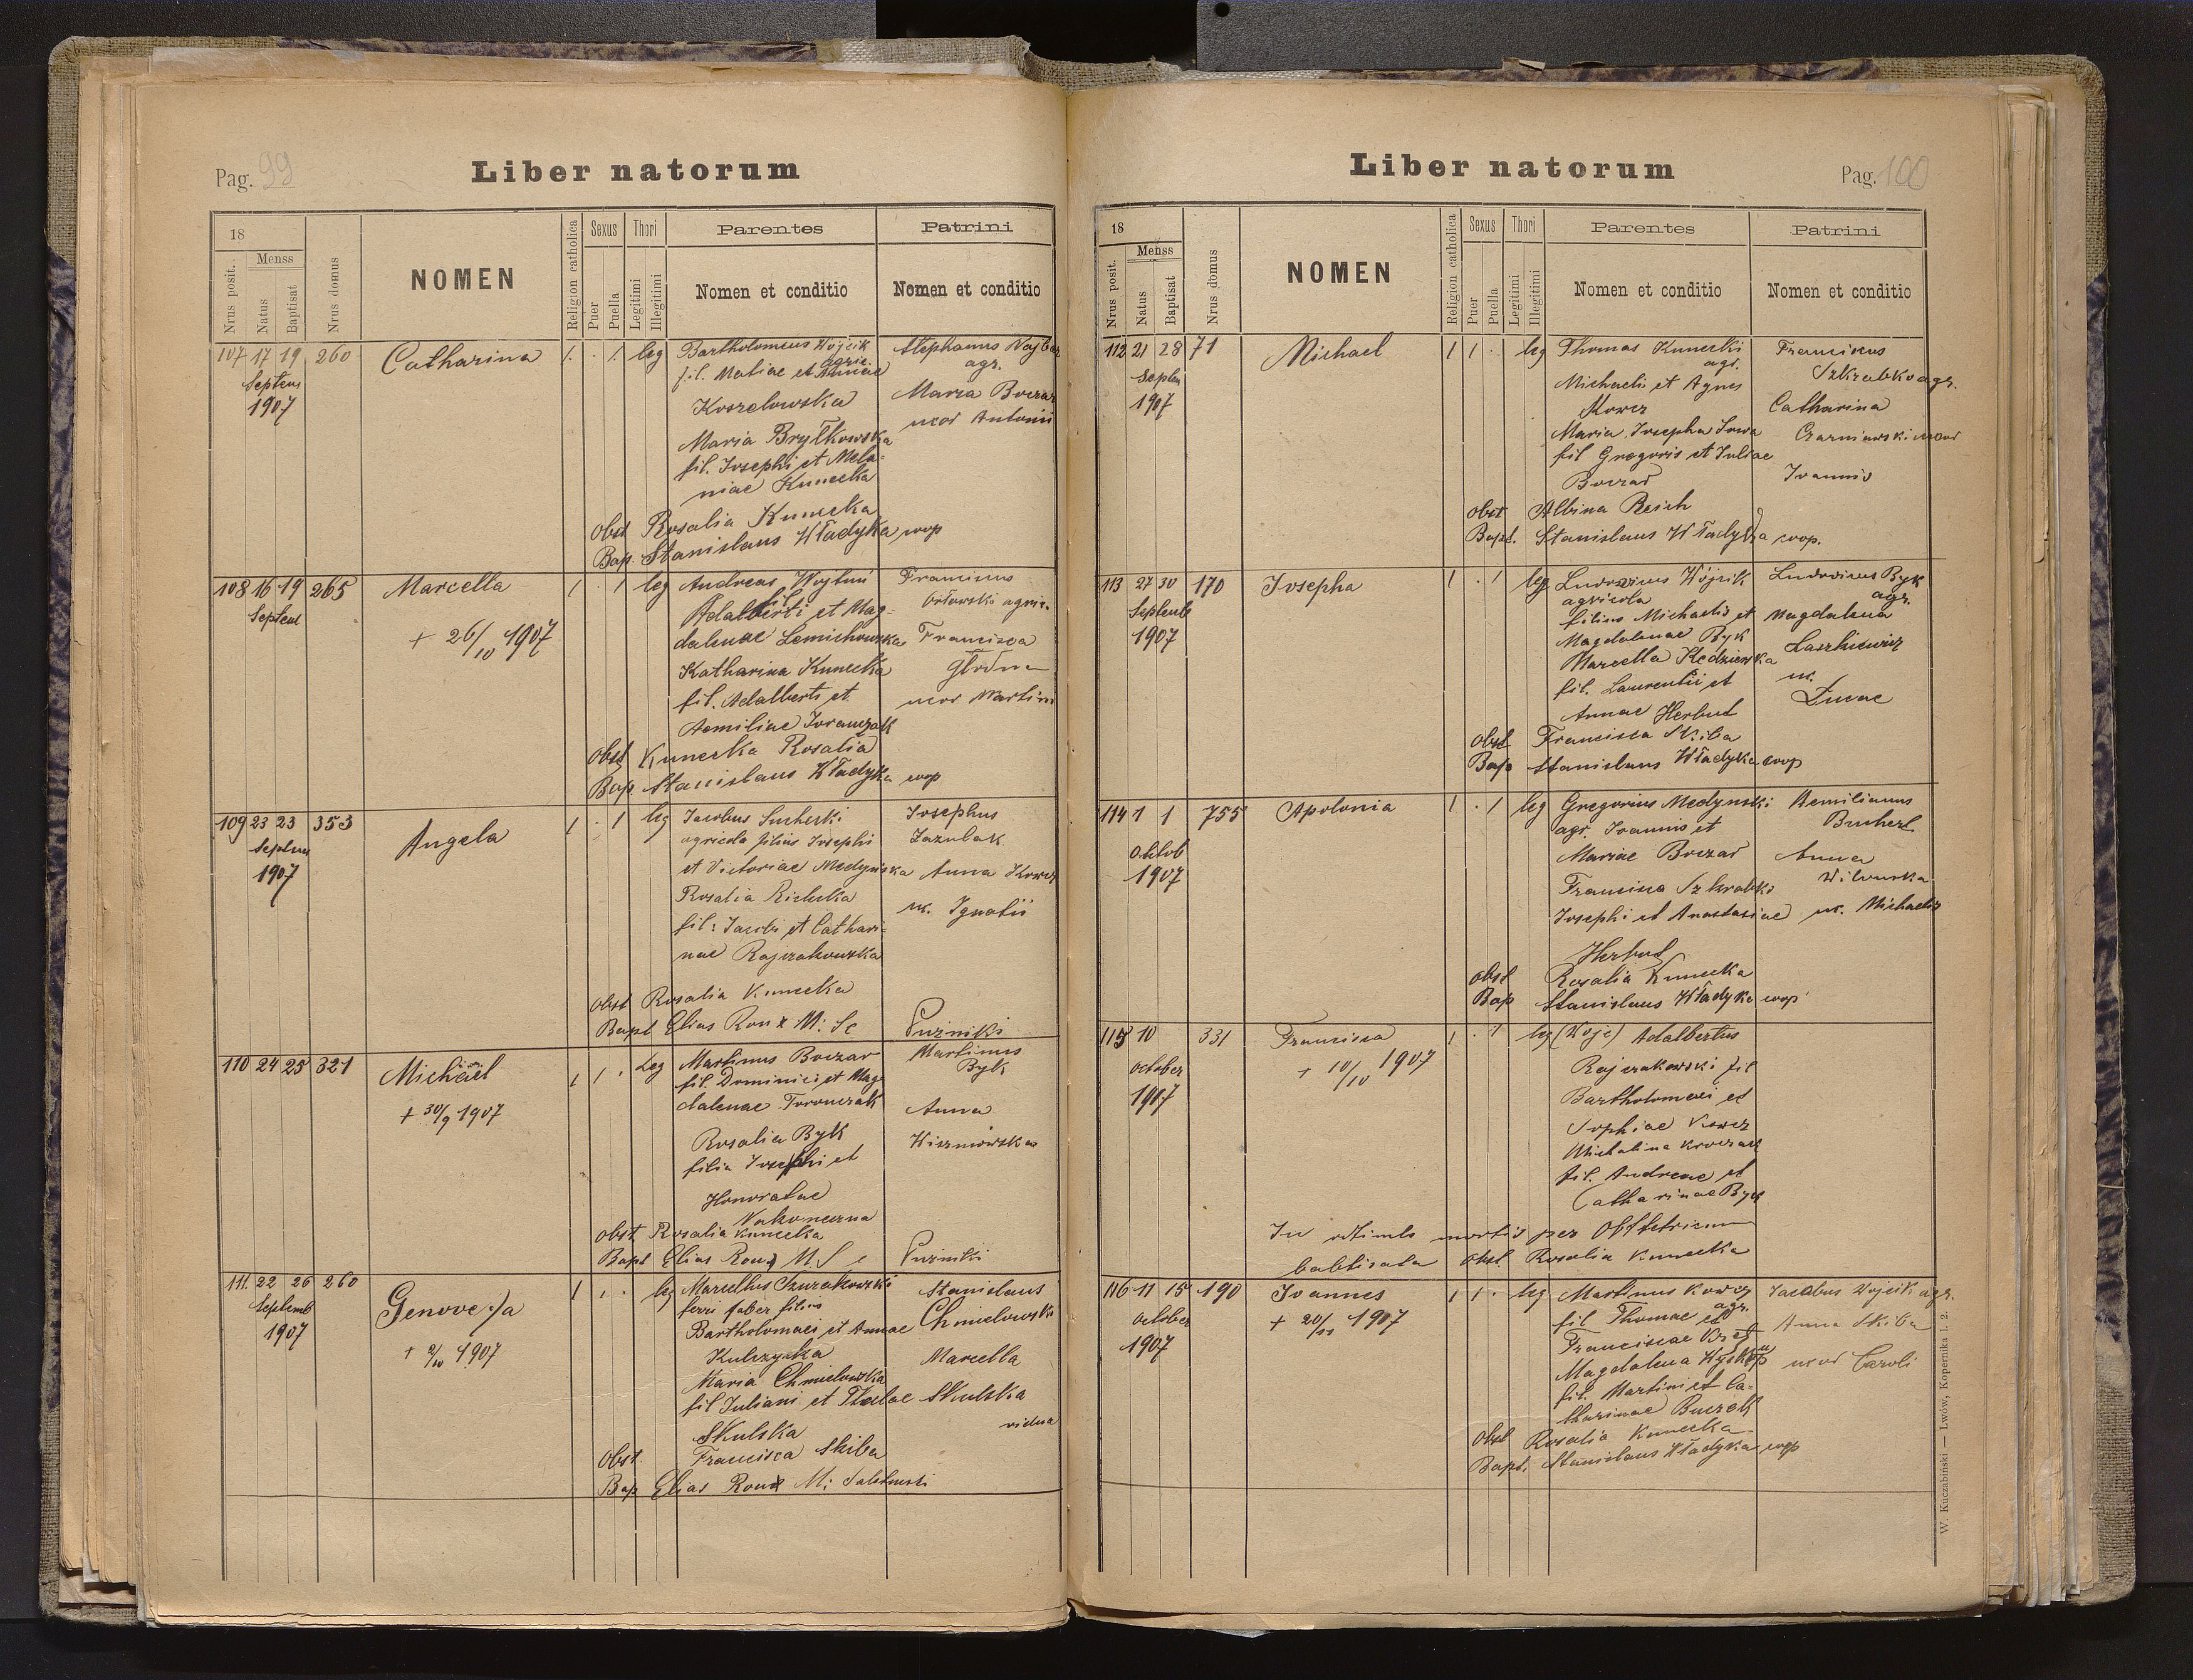 Pag. 99
Liber natorum
18
Menss
Nrus posit.
Natus
Baptisat
Nrus domus
NOMEN
Religion catholica
Sexus
Puer
Puella
Thori
Legitimi
Illegitimi
Parentes
Nomen et conditio
Patrini
Nomen et conditio
107 17 19 260 Catharina 1 . 1 leg
1907
Bartholomeus Wojcik
agric.
fil. Matiae et Annae
Koszelowska
Maria Bryłkowska
fil. Josephi et Mela-
niae Kunecka
Stephanus
agr.
Maria Boczar
uxor Antonii
Obst Rosalia Kunecka
Bap. Stanislaus Władyka coop
108 16 19 265 Marcella 1 . 1 leg
Septem
+ 26/10 1907
Andreas
fil.
Adalberti et Mag-
dalenae
Katharina Kunecka
fil. Adalberti et
Aemiliae
Orłowski agric.
Francisca
Głodna
uxor Martini
Obst Kunecka Rosalia
Bap. Stanislaus Władyka coop
109 23 23 353 Angela 1 . 1 leg
1907
Jacobus Sucherski
agricola filius Josephi
et Victoriae Medyńska
Rosalia
fil: Jacobi et Cathari-
nae Rajzakowska
Josephus
Zazulak
Anna Kowcz
ux. Ignatii
Obst Rosalia Kunecka
Bapt Elias Roux M: Se Puzniki
110 24 25 321 Michael 1 1 . Leg
+ 30/9 1907
Martinus Boczar
fil. Dominici et Mag-
dalenae Toronczak
Rosalia Byk
filia Josephi et
Honoratae
Nakoneczna
Martinus
Byk
Anna
Wiszniowska
Obst. Rosalia Kunecka
Bapt Elias Roux M. S Puzniki
111. 22 26 260 Genovefa 1 . . leg
Septemb
1907
+ 2/10 1907
Marcellus Czuzakowski
ferri faber filius
Bartholomaei et Annae
Kulczycka
Maria Chmielowska
fil Juliani et Theclae
Skulska
Stanislaus
Chmielowski
Marcella
Skulska
vidua
Obst. Francisca Skiba
Bap Elias Roux M:
Liber natorum
Pag. 100
18
Menss
Nrus posit.
Natus
Baptisat
Nrus domus
NOMEN
Religion catholica
Sexus
Puer
Puella
Thori
Legitimi
Illegitimi
Parentes
Nomen et conditio
Patrini
Nomen et conditio
112 21 28 71 Michael 1 1 . leg
1907
Thomas Kunecki
agr.
Michaelis et Agnes
Kowcz
Maria Josepha Sowa
fil Gregoris et Juliae
Boczar
Franciscus
Szkrabko agr.
Catharina
Czarniawski uxor
Joannis
Obst Albina Reich
Bapt. Stanislaus Władyka coop.
113 27 30 170 Josepha 1 . 1 leg
Septemb
1907
Ludovicus Wójcik
agricola
filius Michaelis et
Magdalenae Byk
Marcella Kędzierska
fil. Laurentii et
Annae Herbut
Ludovicus Byk
agr.
Magdalena
Laszkiewicz
ux.
Lucae
Obst Francisca Skiba
Bap Stanislaus Władyka coop
114 1 1 755 Apolonia 1 . 1 leg
Oktob
1907
Gregorius Medynski
agr. Joannis et
Mariae Boczar
Francisca Szkrabko
Josephi et Anastasiae
Herbut
Aemilianus
Anna
ux. Michaelis
Obst Rosalia Kunecka
Bap Stanislaus Władyka coop
115 10 331 Francisca 1 . 1 leg
October
1907
+ 10/10 1907
(Wojc) Adalbertus
Rajzakowski fil
Bartholomaei et
Sophiae Kowcz
Michalina
fil. Andreae et
Catharinae Byk
In articulo mortis per Obstetricem
babtisata Obst. Rosalia Kunecka
116 11 15 190 Joannes 1 1 . leg
October
1907
+ 20/11 1907
Martinus Kowcz
agr.
fil Thomae et
Franciscae
Magdalena
fil. Martini et Ca-
tharinae
Jacobus Wojcik agr.
Anna Skiba
uxor Caroli
Obst Rosalia Kunecka
Bapt. Stanislaus Władyka coop
W. Kuczabiński — Lwów, Kopernika l. 2.